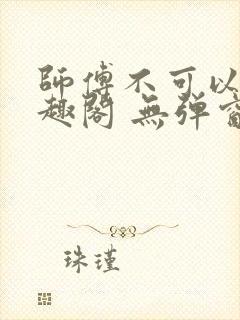 師傅不可以
趣閣 無弹
珠瑾